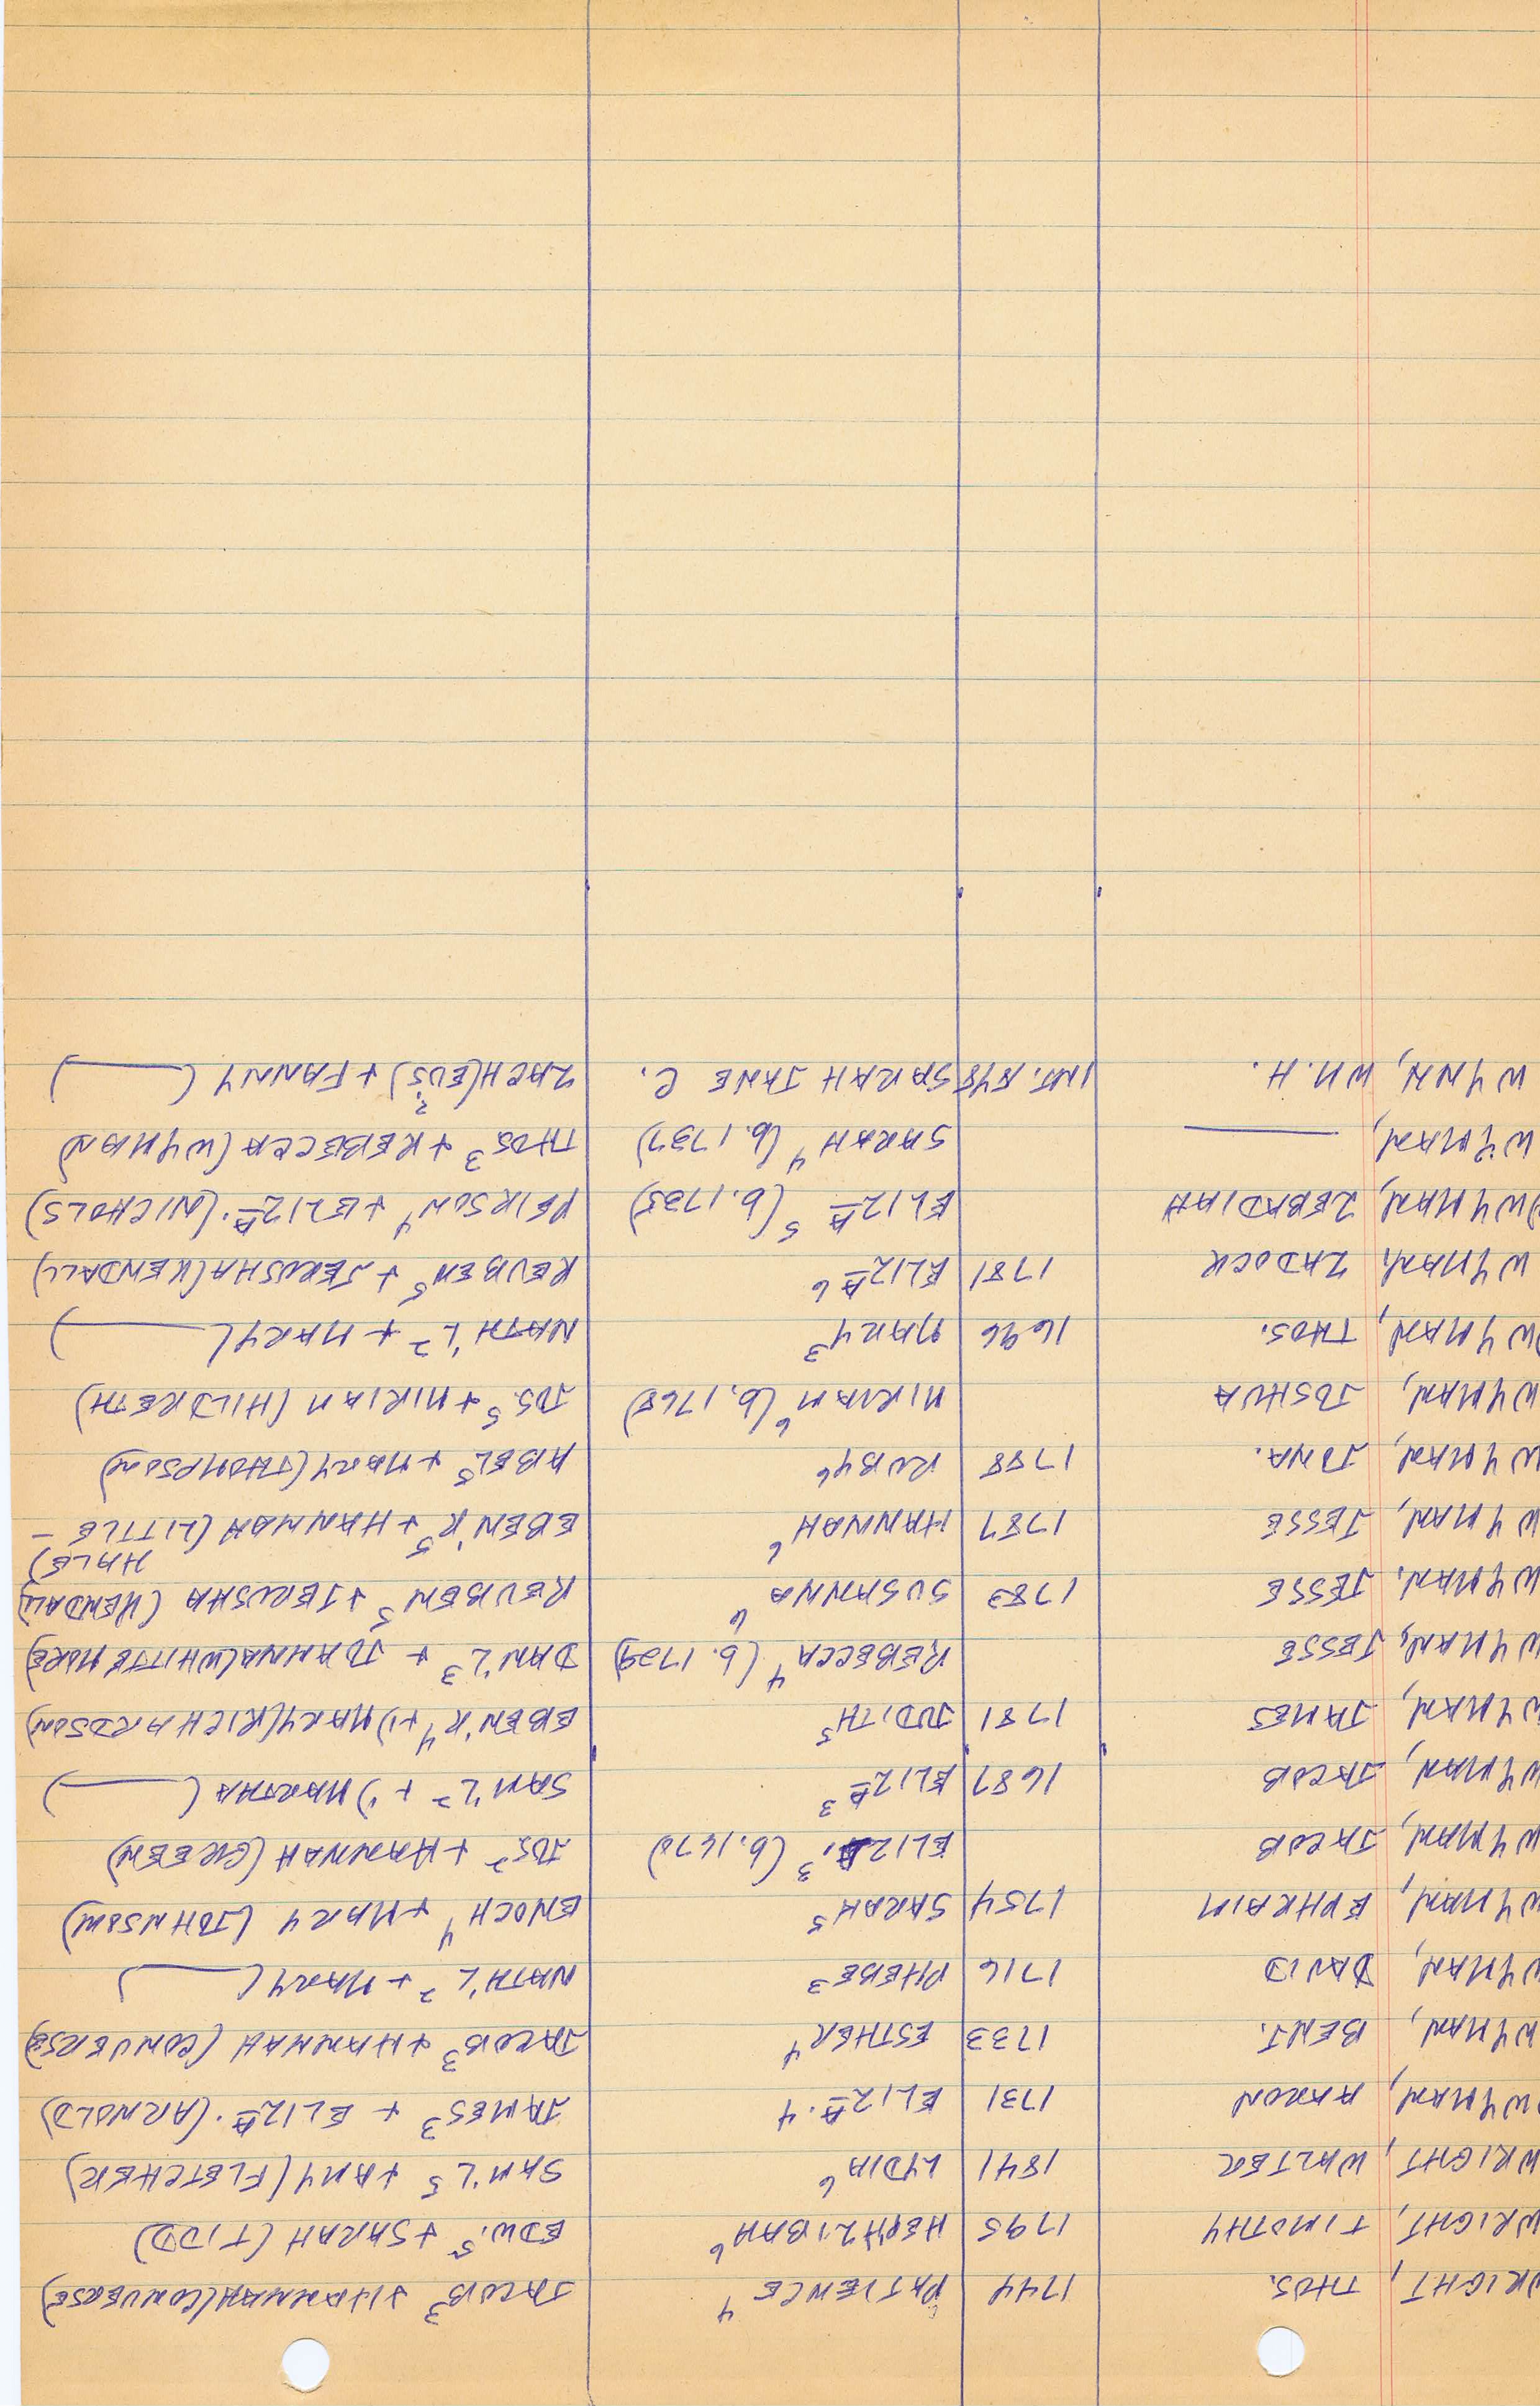 WRIGHT, THOS. 1744 PATIENCE⁴ JACOB³ + HANNAH (CONVERSE)
WRIGHT, TIMOTHY 1795 HEPHZIBAH⁶ EDW.⁵ + SARAH (TIDD)
WRIGHT, WALTER 1841 LYDIA⁶ SAM'L⁵ + AMY (FLETCHER)
WYMAN, AARON 1731 ELIZᴬ.⁴ JAMES³ + ELIZᴬ. (ARNOLD)
WYMAN, BENJ. 1733 ESTHER⁴ JACOB³ + HANNAH (CONVERSE)
WYMAN, DAVID 1716 PHEBE³ NATH'L² + MARY (———)
WYMAN, EPHRAIM 1754 SARAH⁵ ENOCH⁴ + MARY (JOHNSON)
WYMAN, JACOB ELIZᴬ.³ (b. 1670) JOS.² + HANNAH (GREEN)
WYMAN, JACOB 1687 ELIZᴬ³ SAM'L² + 1) MARTHA (———)
WYMAN, JAMES 1781 JUDITH⁵ EBEN'R⁴ + 1) MARY (RICHARDSON)
WYMAN, JESSE REBECCA⁴ (b. 1729) DAN'L³ + JOANNA (WHITTEMORE)
WYMAN, JESSE 1783 SUSANNA⁶ REUBEN⁵ + JERUSHA (KENDALL)
WYMAN, JESSE 1787 HANNAH⁶ EBEN'R⁵ + HANNAH (LITTLE-
HALE)
WYMAN, JONA. 1788 RUBY⁶ ABEL⁵ + MARY (THOMPSON)
WYMAN, JOSHUA MIRIAM⁶ (b. 1768) JOS.⁵ + MIRIAM (HILDRETH)
WYMAN, THOS. 1696 MARY³ NATH'L² + MARY (———)
WYMAN, ZADOCK 1781 ELIZᴬ⁶ REUBEN⁵ + JERUSHA (KENDALL)
WYMAN, ZEBADIAH ELIZᴬ⁵ (b. 1735) PEIRSON⁴ + ELIZᴬ. (NICHOLS)
WYMAN, ——— SARAH⁴ (b. 1737) THOS.³ + REBECCA (WYMAN)
WYNN, WM. H. INT. 1848 SARAH JANE C. ZACH(EUS?) + FANNY (———)